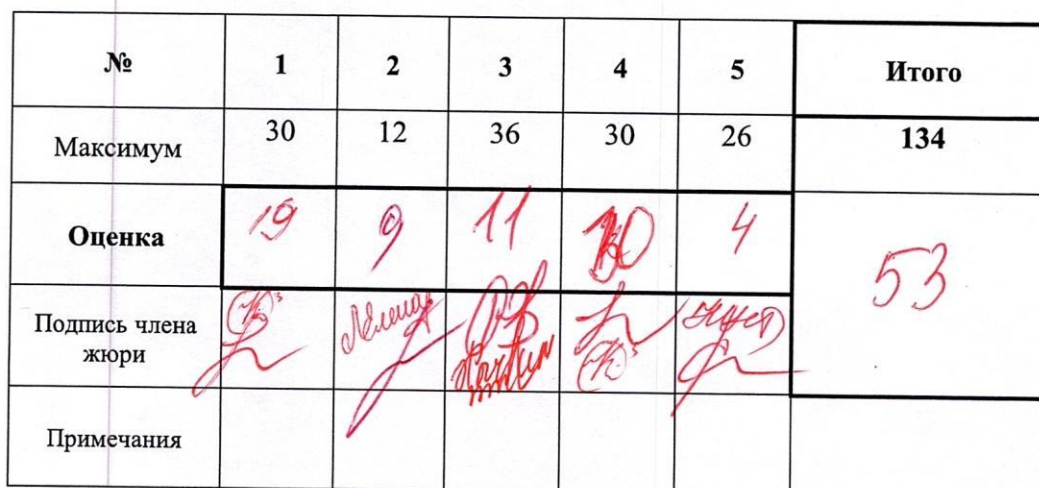 № 1 2 3 4 5 Итого
Максимум 30 12 36 30 26 134
Оценка 19 9 11 10 4 53
Подпись члена
жюри
Примечания